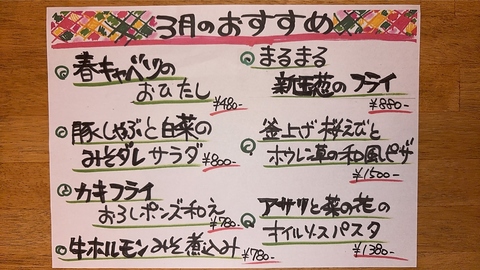 3月のおすすめ
春キャベツの
おひたし
¥480-
豚しゃぶと白菜の
みそダレサラダ
¥800-
カキフライ
おろしポンズ和え
¥780-
牛ホルモンみそ煮込み
¥780-
まるまる
新玉葱のフライ
¥880-
釜上げ桜えびと
ホウレン草の和風ピザ
¥1500-
アサリと菜の花の
オイルソースパスタ
¥1380-